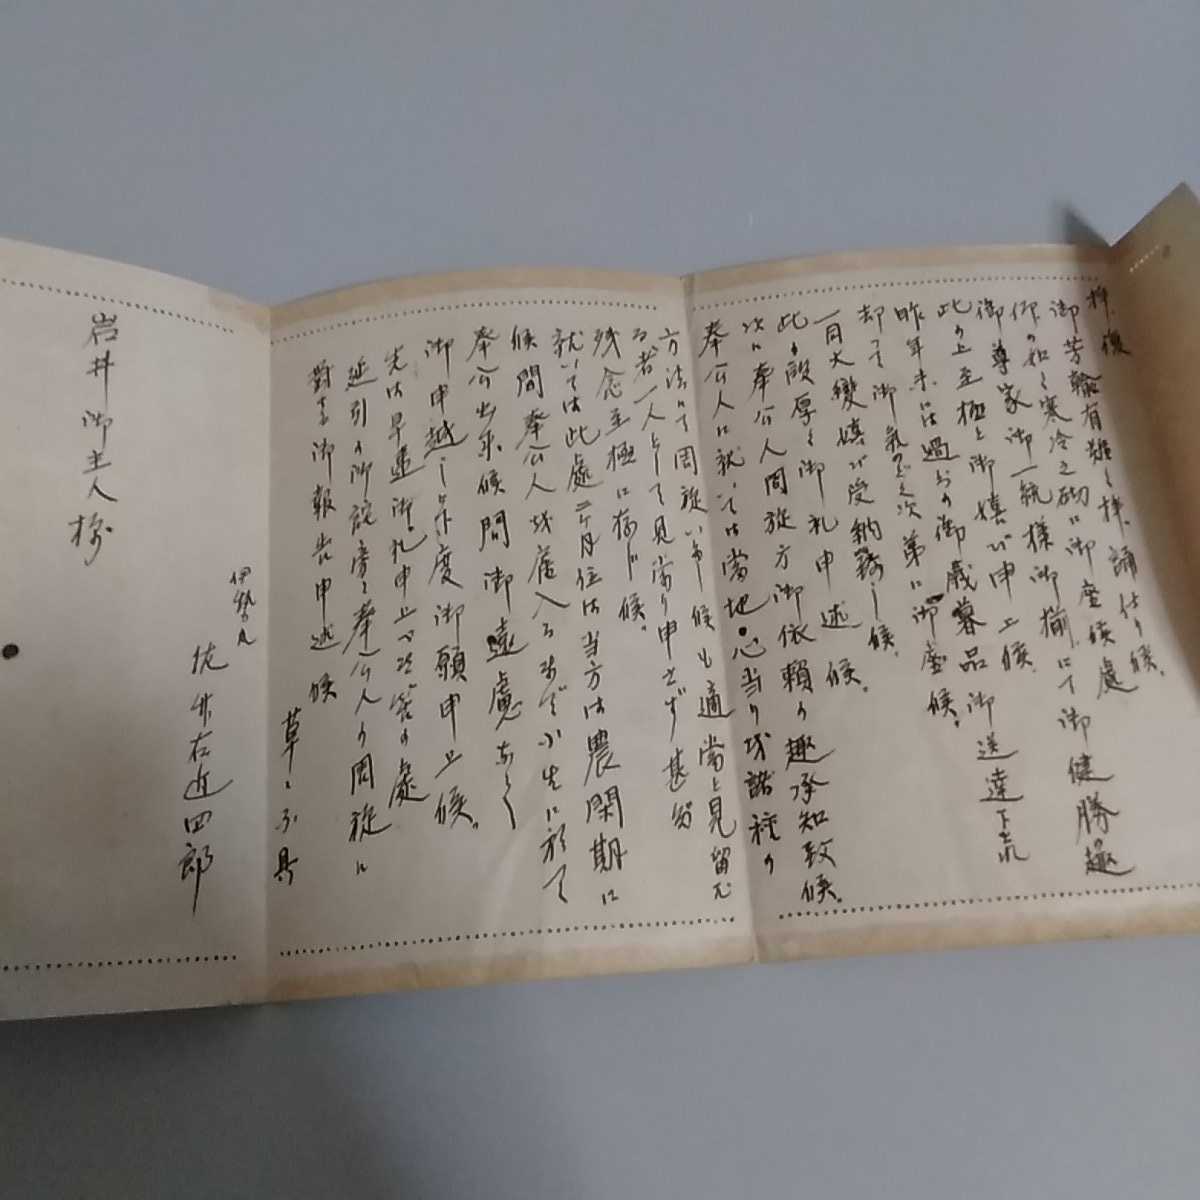 拝復
御芳翰有難く拝誦仕り候。
仰の如く寒冷之砌に御座候處
御尊家御一統様御揃にて御健勝趣
此の上至極と御慶び申上候。
昨年末には過分の御歳暮品御送達下され
却って御気のどく次第に御座候。
一同大変嬉び受納致し候。
此の段厚く御礼申述候。
次に奉公人周旋方御依頼の趣承知致候。
奉公人に就いては当地心当り或諸種の
方法にて周旋い申し候も適当と見留む
る者一人として見当り申さず甚だ
残念至極に存じ候。
就いては此處二ヶ月位は当方は農閑期に
候間奉公人雇入るまで小生に於て
奉公出来候間御遠慮なく
御申越し下度御願申上候。
先は早速御礼申上べき筈の處
延引の御詫旁々奉公人の周旋に
對する御報告申述候
草々不具
佐 右近四郎
岩井御主人様